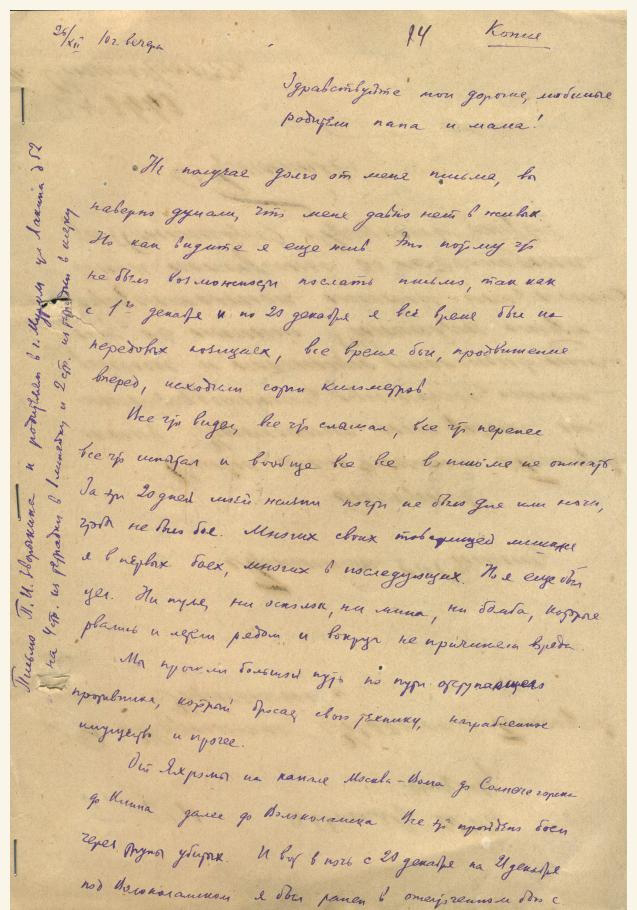 26/XII 10 г. вечера
14
Копия
Здравствуйте мои дорогие, любимые
родители папа и мама!
Не получае долго от меня письма, вы
наверно думали, что меня давно нет в живых
Но как видите я еще жив. Это потому что
не было возможности послать письмо, так как
с 1го декабря и по 20 декабря я всё время был на
передовых позициях, все время бои, продвижение
вперед, исходили сотни километров.
Все что видел, все что слышал, все что перенес
все что испытал и вообще все все в письме не описать.
За эти 20 дней моей жизни почти не было дня или ночи,
чтобы не было боя. Многих своих товарищей лишился
я в первых боях, многих в последующих. Но я еще был
цел. Ни пуля, ни осколок, ни мина, ни бомба, которые
рвались и летели рядом и вокруг не причинили вреда.
Мы прошли большой путь по пути отступающего
противника, который бросает свою технику, награбленное
имущество и прочее.
От Яхромы на канале Москва-Волга до Солнечногорска
до Клина далее до Волоколамска Все это пройдено боем
через трупы убитых. И вот в ночь с 20 декабря на 21 декабря
под Волоколамском я был ранен в ожесточенном бою с
Письмо П.И. к родителям в г. Муром ул Лакина д 52
на 4 стр. из тетрадки в 1 линейку и 2 стр. из тетрадки в клетку